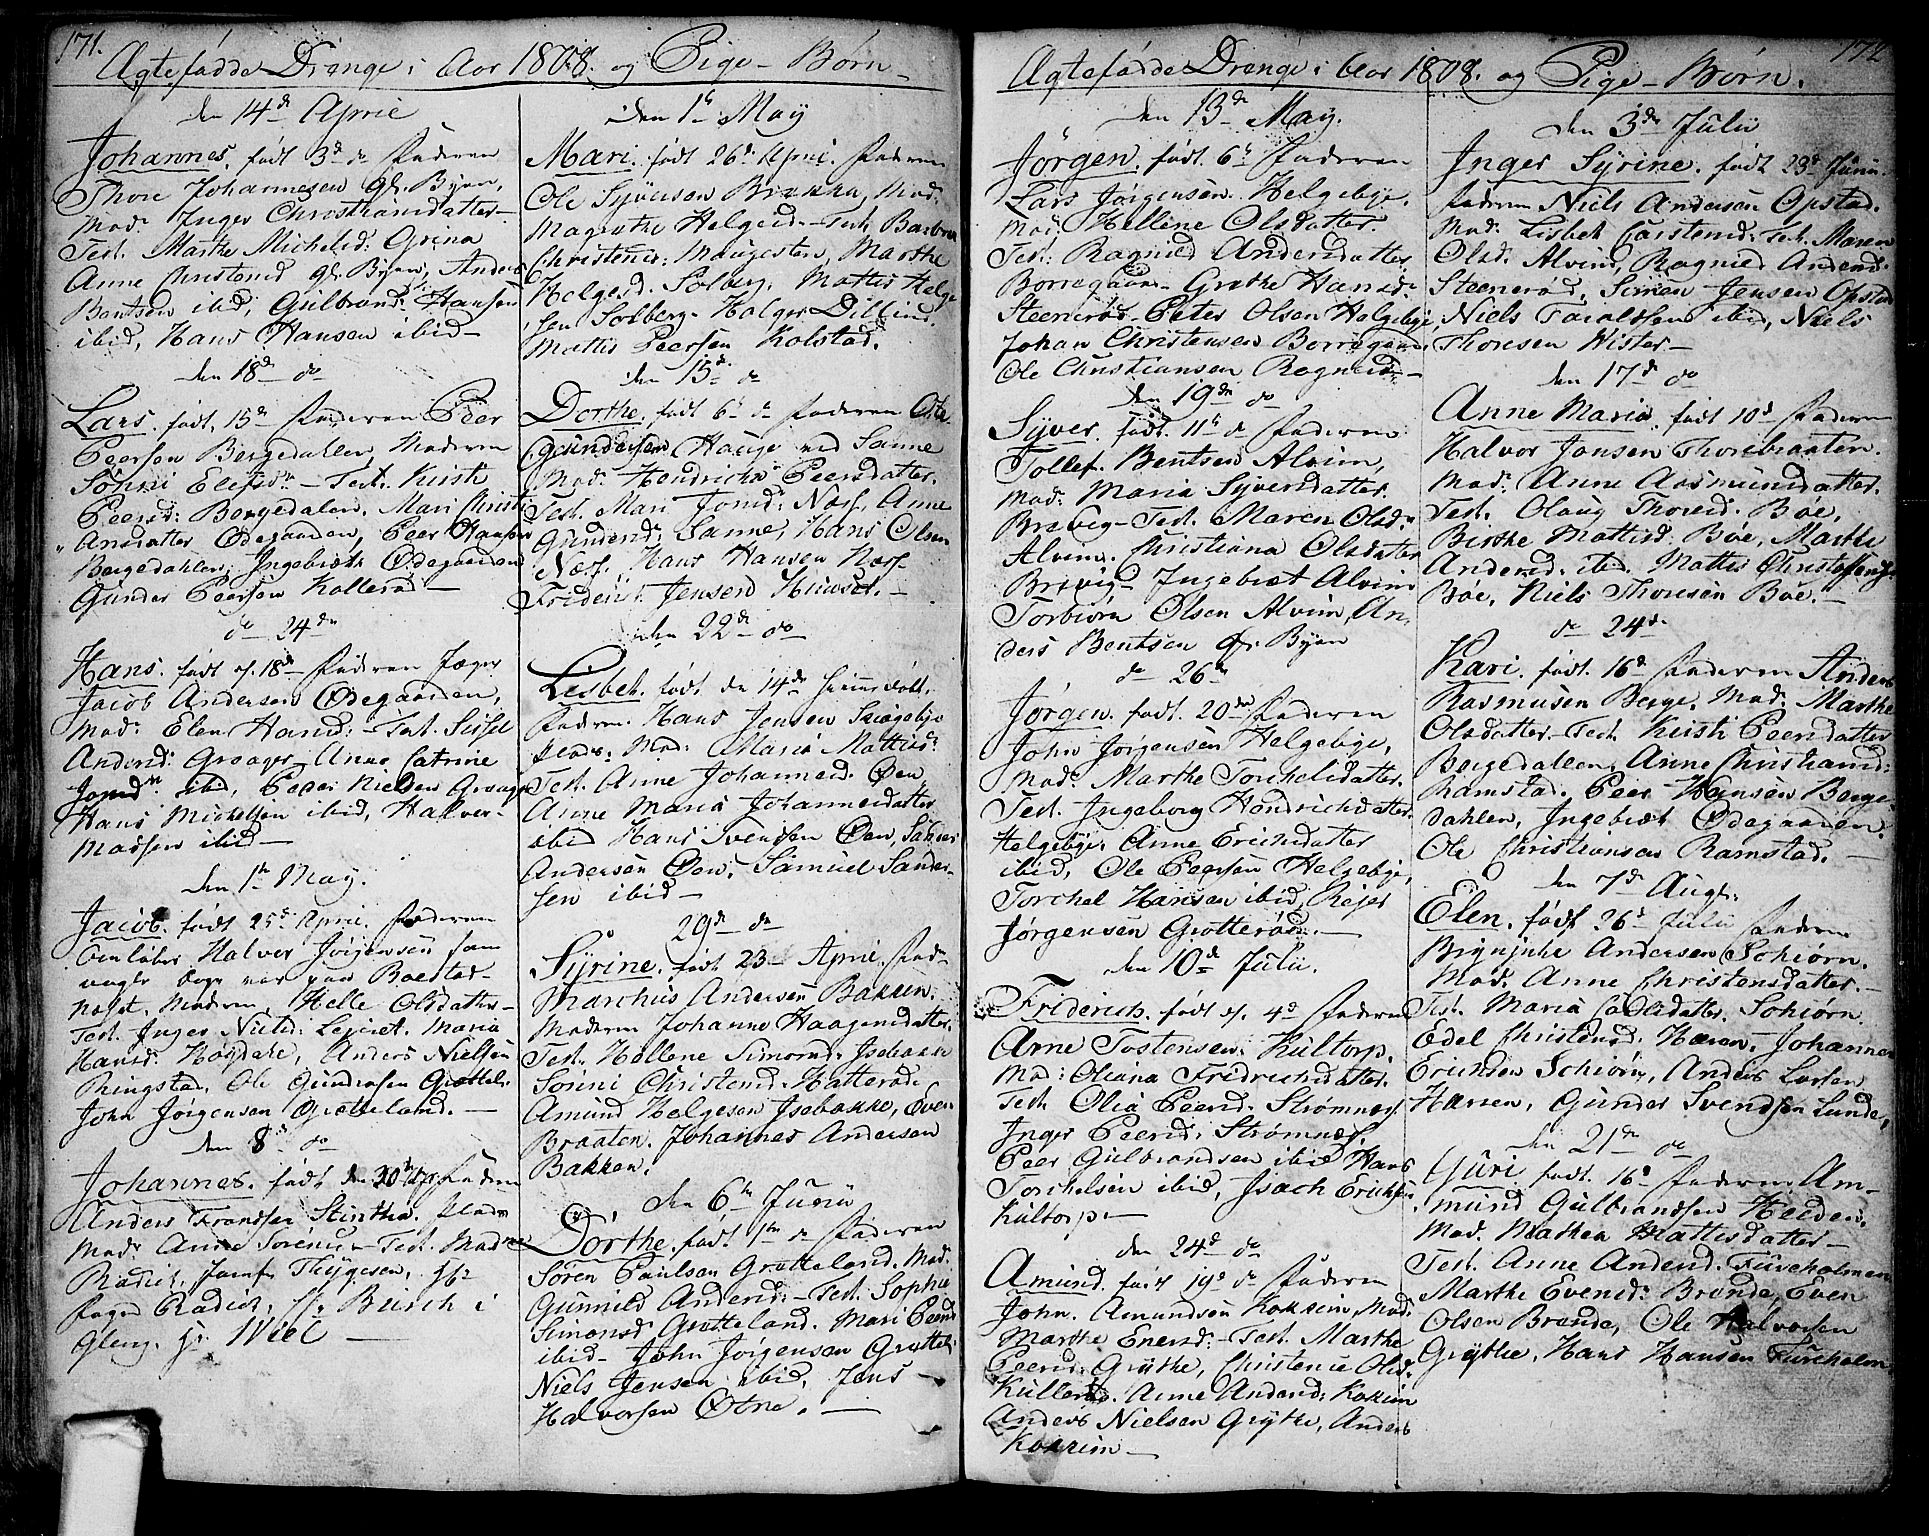 171.
Agtefødde Drenge i Aar 1808. og Pige-Børn
den 14de April
Johannes. født 3de do Faderen
Thore Johannesen gl. Byen,
Mod: Inger Christiansdatter-
Test. Marthe Michelsd: Grina
Anne Christensd gl. Byen, Anders
Bentsen ibid, Gulbrand Hansen
ibid, Hans Hansen ibid-
den 18de do
Lars. født, 15de Faderen Peer
Peersen Bergedahlen, Moderen
Sønni Elefsdr - Test. Kirsti
Peersd: Bergedalen, Mari Christi
ansdatter Ødegaarden, Peer Hansen
Bergedahlen, Ingebreth Ødegaarden
Gunder Peersen Kollerød-
do 24de
Hans. født d. 18de Faderen Jæger
Jacob Andersen Ødegaarden,
Mod: Elen Hansd:- Test. Sissel
Andersd: Graager, Anne Catrine
Jonsdr ibid, Peder Nielsen
Hans Michelsen ibid, Halver-
Madsen ibid-
den 1te May.
Jacob. født 25de April. Faderen
Halver Jørgensen som
Moderen Helle Olsdatter-
Test. Inger Nielsd: Maria
Hansd: Anders Nielsen
Ringstad, Ole Gundersen Grøttel.
John Jørgensen Grøtteland.-
den 8de do
Johannes. født den 20de Ap Faderen
Anders Frandsen
Mod: Anne Sorensd- Test. Mad
Radich, Jomf. Thygesen, Hr
Radich, Hr Busch i
Gleng. Hr. Wiel-
den 1te May
Mari. født 26de April. Faderen
Ole Syversen Brække, Mod.
Magrethe Helgesd-Test Barbroe
Christensd: Maugesten, Marthe
Helgesd. Solberg. Mattis Helge
sen Solberg- Holger Dillund.
Mattis Peersen Kolstad.
den 15de do
Dorthe. født 6te do Faderen Ole
Gundersen Hauge ved Sanne
Mod: Hendricka Peersdatter.
Test. Mari Jonsd: Næss, Anne
Gundersd: Sanne, Hans Olsen
Næss. Hans Hansen Næss-
Jensen
den 22de do
Lisbet. født den 14de
Faderen Hans Jensen
Mod: Maria Mattisd:
Test. Anne Johannesd. Øen
Anne Maria Johannesdatter
ibid Hans Svendsen Øen,
Andersen Øen, Samuel Sander-
sen ibid-
29de do
Syrine. født 23de April. Fad-
Marchus Andersen Bakken.
Moderen Johanne Haagensdatter.
Test. Hellene Simonsd: Isebakke
Sønni Christensd: Hatterød
Amund Helgesen Isebakke, Even
Braaten. Johannes Andersen
Bakken.
den 6te Junii
Dorthe. født 1te do Faderen
Søren Paulsen Grøtteland. Mod:
Gunnild Andersd:-Test. Sophie
Simonsd Grøtteland. Mari Peersd
ibid- John Jørgensen Grøttel.
Niels Jensen ibid, Jens
Halvorsen Øtne.-
172
Agtefødde Drenge i Aar 1808. og Pige-Børn.
den 13de May.
Jørgen. født. 6te Faderen
Lars Jørgensen. Helgebye.
Mod: Hellene Olsdatter.
Test: Ragnild Andersdatter
Borregaar- Grethe Hansd:
Steenerød-Peter Olsen Helgebye,
Johan Christensen Borregaar
Ole Christiansen
den 19de do
Syver. født. 11te do Faderen
Tollef. Bentsen Alvim,
Mod: Maria Syversdatter.
Brevig- Test. Maren Olsd:
Alvim. Christiana Olsdatter
Brevig- Ingebret Alvim
Torbiørn Olsen Alvim, An-
ders Bentsen gl. Byen
do 26de
Jørgen. født. 20de Faderen
John Jørgensen Helgebye,
Mod: Marthe Torchelsdatter.
Test. Ingeborg Hendrichsdatter
Helgebye. Anne Erichsdatter
ibid, Ole Peersen Helgebye,
Torchel Hansen ibid, Rejer
Jørgensen Grøtterød.-
den 10de Julii.
Friderich. født d. 4de Faderen
Arne Tostensen. Kultorp.
Mo: Oliana Fridrichsdatter.
Test. Olia Peersd: Strømnæs.
Inger Peersd: Strømnæs.
Peer Gulbrandsen ibid Hans
Torchelsen ibid, Isach Erichsen
Kultorp-
den 24de do
Amund. født 19de do Faderen
John Amundsen Kokkim, Mod.
Marthe Enersd:-Test. Marthe
Peersd: Grythe, Christence Olsd.
Kullerød. Anne Andersd: Kokkim
Anders Nielsen Grythe, Anders
Kokkim-
den 3de Julii
Inger Syrine. født 23de Junii.
Faderen Niels Andersen Opstad.
Mod: Lisbet Carstensd: Test. Maren
Olsd. Alvim, Ragnild Andersd.
Steenerød, Simen Jensen Opstad
Niels Taraldsen ibid, Niels
Thoresen Wister-
den 17de do
Anne Maria. født 10de Faderen
Halvor Jonsen Thorsbraaten.
Mod: Anne Aasmundsdatter.
Test. Olaug Thoresd. Bøe,
Birthe Mattisd: Bøe, Marthe
Andersd. ibid. Mattis Christophersen
Bøe, Niels Thoresen Bøe.-
do 24de
Kari. født. 16de Faderen Anders
Rasmusen Berge. Mod: Marthe
Olsdatter-Test. Kirsti Peersdatter
Bergedalen, Anne Christiansd:
Ramstad. Peer Hansen Berge-
dahlen, Ingebret Ødegaarden.
Ole Christiansen Ramstad.-
den 7de Augt.
Elen. født 26de Julii Faderen
Andersen Schiørn.
Mod. Anne Christensdatter.-
Test. Maria Carlsdatter Schiørn.
Edel Christensd: Haren. Johannes
Erichsen Schiørn, Anders Larsen
Haren, Gunder Svendsen Lunde,
den 21de do
Guri. født. 16de Faderen Am-
mund Gulbrandsen Heeden.
Mod. Marthea Mattisdatter-
Test. Anne Andersd. Fureholmen
Marthe Evensd: Brende, Even
Olsen Brende, Ole Halvorsen
Grythe, Hans Hansen Fureholm